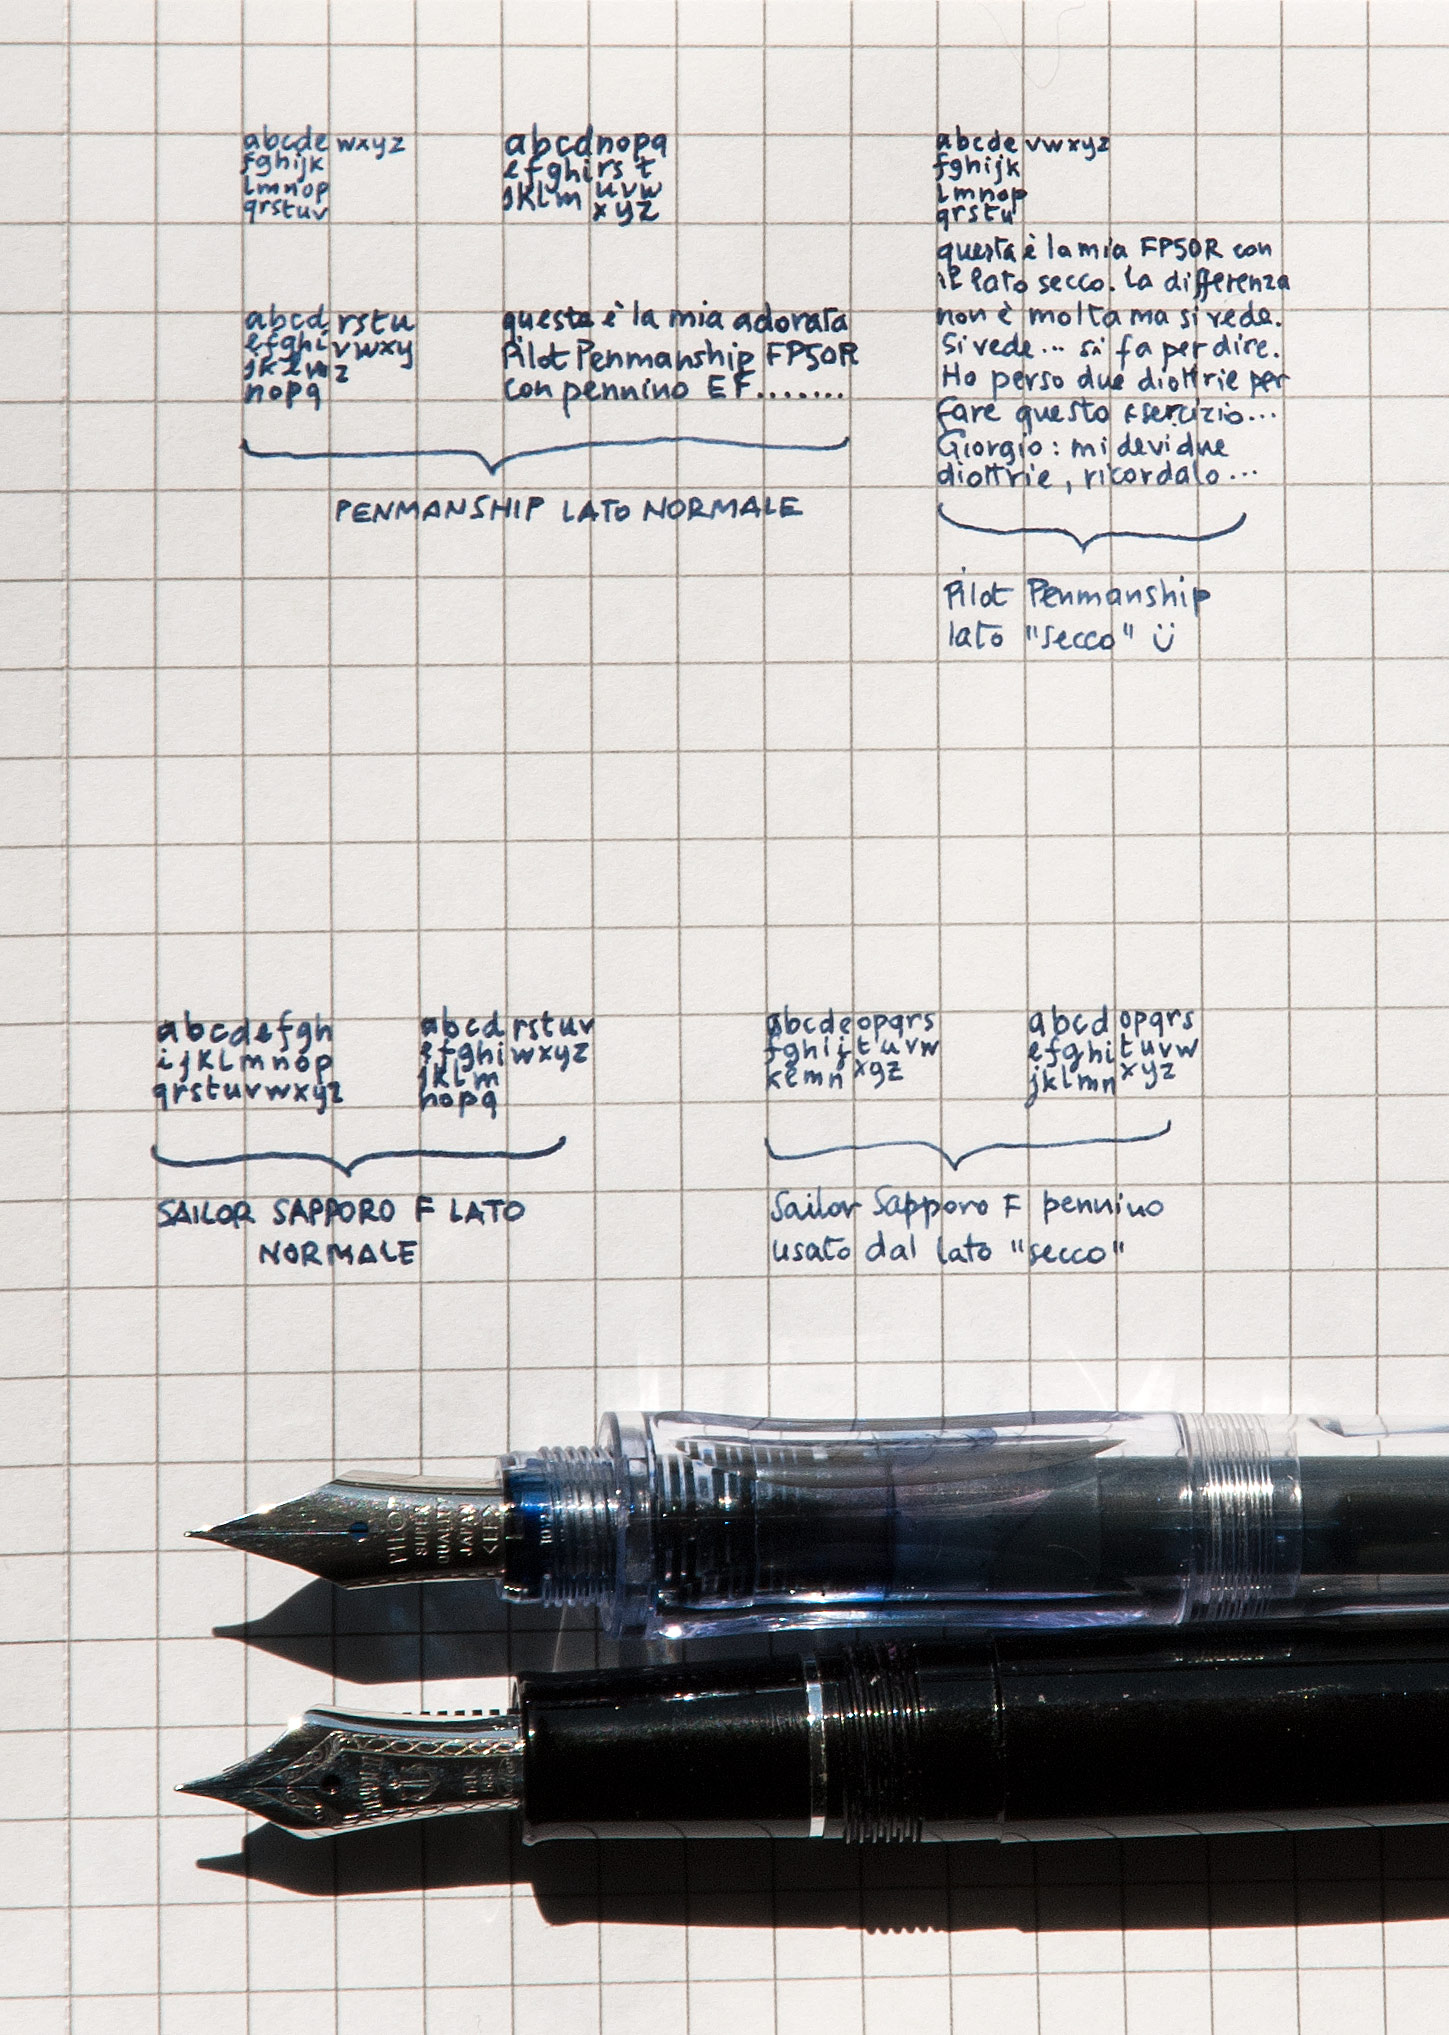 abcde wxyz
fghijk
lmnop
qrstuv
abcdnopq
efghirs t
jklm uvw
xyz
abcd rstu
efghi vwxy
jklm z
nopq
questa è la mia adorata
Pilot Penmanship FP50R
con pennino EF.......
PENMANSHIP LATO NORMALE
abcde vwxyz
fghijk
lmnop
qrstu
questa è la mia FP50R con
il lato secco. La differenza
non è molta ma si vede.
Si vede... si fa per dire.
Ho perso due diottrie per
fare questo esercizio...
Giorgio: mi devi due
diottrie, ricordalo...
Pilot Penmanship
lato "secco" ü
abcdefgh
ijklmnop
qrstuvwxyz
abcd rstuv
efghi wxyz
jklm
nopq
SAILOR SAPPORO F LATO
NORMALE
abcde opqrs
fghij tuvw
klmn xyz
abcd opqrs
efghi tuvw
jklmn xyz
Sailor Sapporo F pennino
usato dal lato "secco"
PILOT
SUPER
QUALITY
JAPAN
<EF>